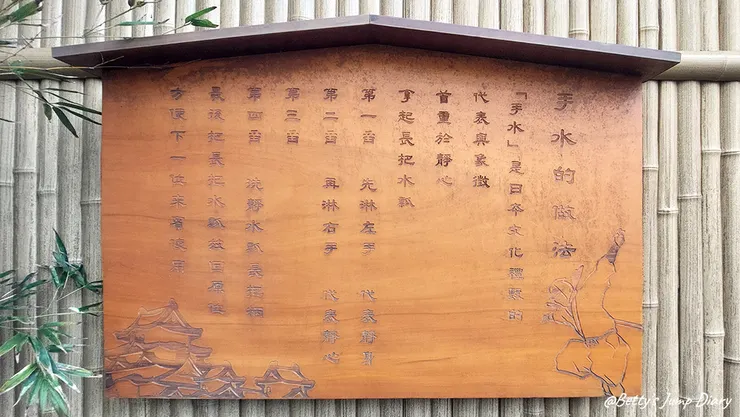 手水的做法
「手水」是日本文化禮貌的
代表與象徵
首重於靜心
拿起長把水瓢
第一舀 先淋左手 代表靜身
第二舀 再淋右手 代表靜心
第三舀
第四舀 洗靜水瓢長把柄
最後把長把水瓢放回原位
方便下一位來賓使用
@Betty's Jump Diary